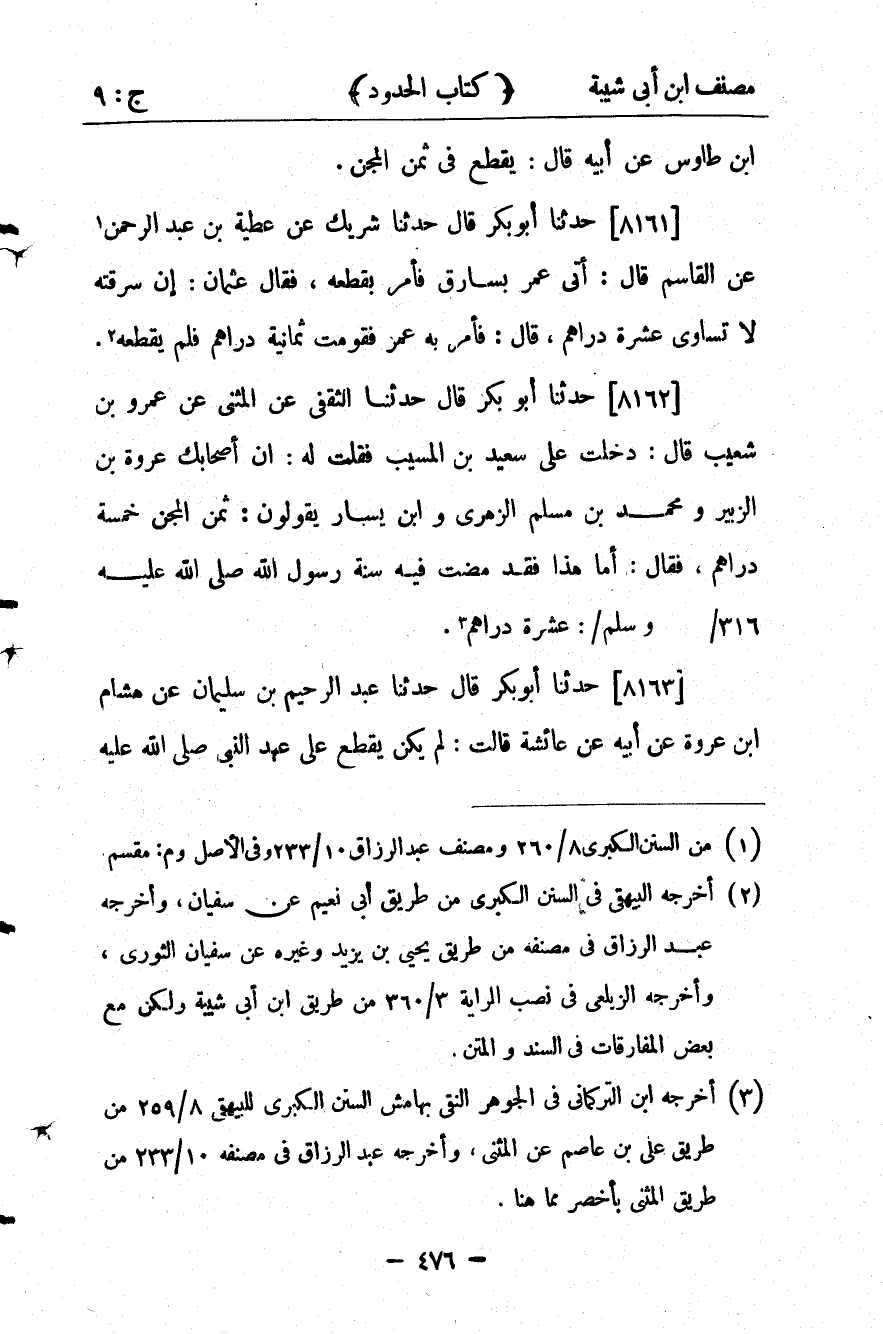 مصنف ابن أبى شيبة ﴿ كتاب الحدود ﴾ ج : ٩
ابن طاوس عن أبيه قال : يقطع فى ثمن المجن .
[٨١٦١] حدثنا أبوبكر قال حدثنا شريك عن عطية بن عبد الرحمن١
عن القاسم قال : أتى عمر بسارق فأمر بقطعه ، فقال عثمان : إن سرقته
لا تساوى عشرة دراهم ، قال : فأمر به عمر فقومت ثمانية دراهم فلم يقطعه٢ .
[٨١٦٢] حدثنا أبو بكر قال حدثنا الثقفى عن المثنى عن عمرو بن
شعيب قال : دخلت على سعيد بن المسيب فقلت له : ان أصحابك عروة بن
الزبير و محمد بن مسلم الزهرى و ابن يسار يقولون : ثمن المجن خمسة
دراهم ، فقال : أما هذا فقد مضت فيه سنة رسول الله صلى الله عليه
٣١٦/ و سلم/ : عشرة دراهم٣ .
[٨١٦٣] حدثنا أبوبكر قال حدثنا عبد الرحيم بن سليمان عن هشام
ابن عروة عن أبيه عن عائشة قالت : لم يكن يقطع على عهد النبى صلى الله عليه
(١) من السنن الكبرى ٨/ ٢٦٠ ومصنف عبدالرزاق ١٠/ ٢٣٣ وفى الأصل وم: مقسم
(٢) أخرجه البيهقى فى السنن الكبرى من طريق أبى نعيم عن سفيان ، وأخرجه
عبد الرزاق فى مصنفه من طريق يحيى بن يزيد وغيره عن سفيان الثورى ،
وأخرجه الزيلعى فى نصب الراية ٣/ ٣٦٠ من طريق ابن أبى شيبة ولكن مع
بعض المفارقات فى السند و المتن .
(٣) أخرجه ابن التركمانى فى الجوهر النقى بهامش السنن الكبرى للبيهقى ٨/ ٢٥٩ من
طريق على بن عاصم عن المثنى ، وأخرجه عبد الرزاق فى مصنفه ١٠/ ٢٣٣ من
طريق المثنى بأخصر مما هنا .
– ٤٧٦ –